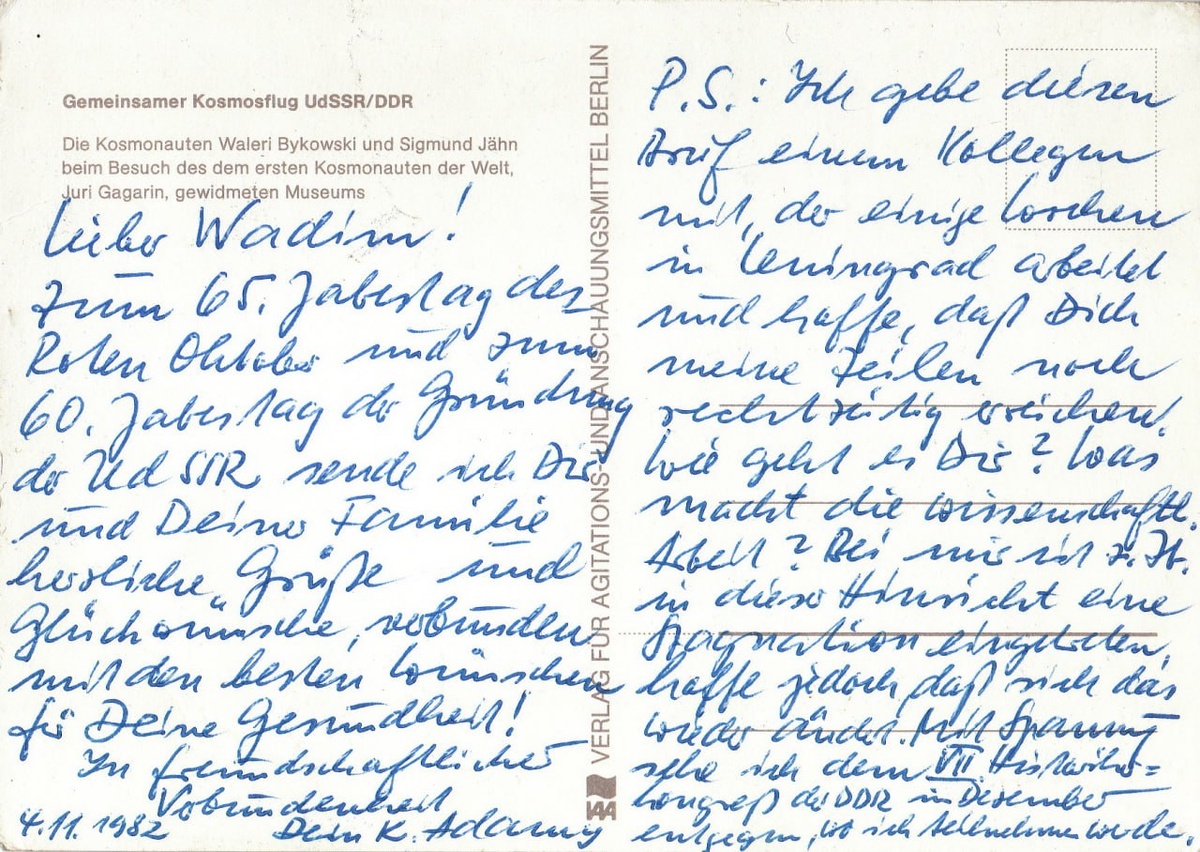 Gemeinsamer Kosmosflug UdSSR/DDR
Die Kosmonauten Waleri Bykowski und Sigmund Jähn
beim Besuch des dem ersten Kosmonauten der Welt,
Juri Gagarin, gewidmeten Museums
Lieber Wadim!
zum 65. Jahrestag des
Roten Oktober und zum
60. Jahrestag der Gründung
der UdSSR sende ich Dir
und Deiner Familie
herzliche Grüße und
Glückwünsche, verbunden
mit den besten Wünschen
für Deine Gesundheit!
In freundschaftlicher
Verbundenheit
4.11.1982 Dein K. Adamy
VERLAG FÜR AGITATIONS- UND ANSCHAUUNGSMITTEL BERLIN
P.S.: Ich gebe diesen
Brief einem Kollegen
mit, der einige Wochen
in Leningrad arbeitet
und hoffe, daß Dich
meine Zeilen noch
rechtzeitig erreichen!
Wie geht es Dir? Was
macht die wissenschaftl.
Arbeit? Bei mir ist z. Zt.
in dieser Hinsicht eine
Stagnation eingetreten,
hoffe jedoch, daß sich das
wieder ändert. Mit Spannung
sehe ich dem VII. Historiker=
kongreß der DDR im Dezember
entgegen, wo ich teilnehmen werde.